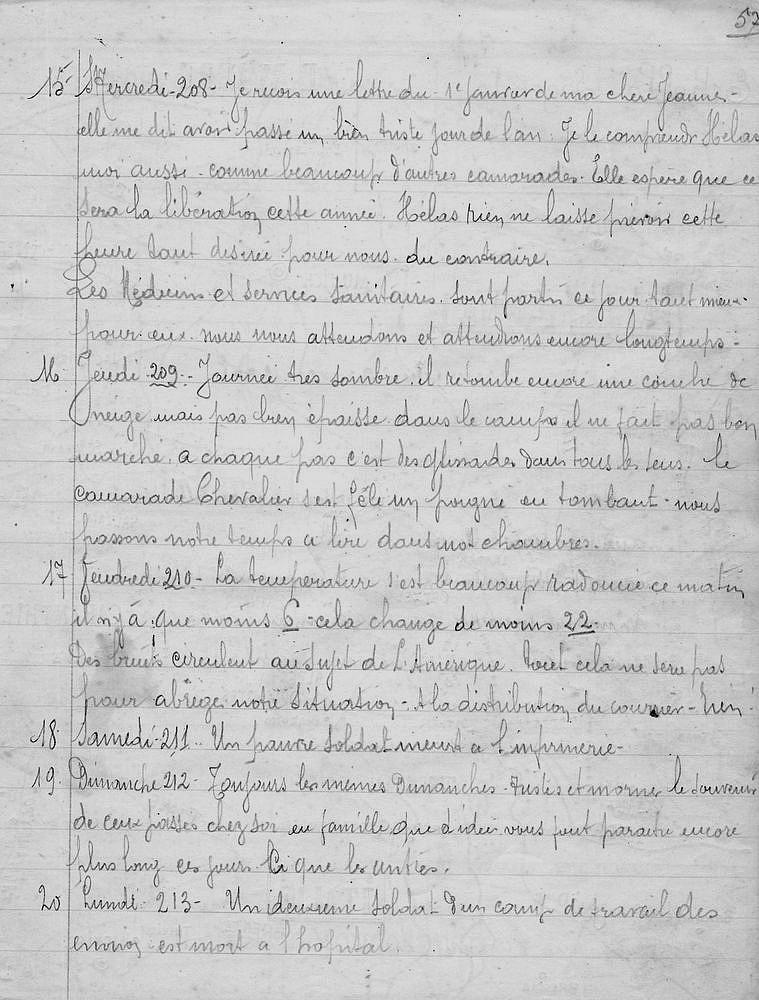 57
15 Mercredi-208- Je recois une lettre du 1e Janvier de ma chere Jeanne-
elle me dit avoir passé un bien triste jour de l'an. Je le comprends Hélas
moi aussi. comme beaucoup d'autres camarades. Elle espère que ce
sera la libération cette année. Hélas rien ne laisse prévoir cette
heure tant desirée pour nous. du contraire.
Les Médecins et services Sanitaires. sont partis ce jour tant mieux
pour eux. nous nous attendons et attendrons encore longtemps-
16 Jeudi 209- Journée tres sombre. il retombe encore une couche de
neige mais pas bien épaisse. dans le camp il ne fait pas bon
marché. a chaque pas c'est des glissades dans tous les sens. le
camarade Chevalier s'est fêlé un poigné en tombant. nous
passons notre temps a lire dans nos chambres.
17 Vendredi 210- La temperature s'est beaucoup radoucie ce matin
il n'y a que moins 6 - cela change de moins 22-
Des bruits circulent au sujet de L'Amérique. tout cela ne sere pas
pour abrège notre situation- A la distribution du courrier- rien!
18 Samedi-211.. Un pauvre soldat meurt a l'infirmerie-
19. Dimanche 212- Toujours les mêmes Dimanches. tristes et mornes le souvenir
de ceux passés chez soi en famille que d'idées vous font paraitre encore
plus long ces jours ci que les autres.
20 Lundi-213- Un deuxieme Soldat d'un camp de travail des
environ est mort a l'hopital.